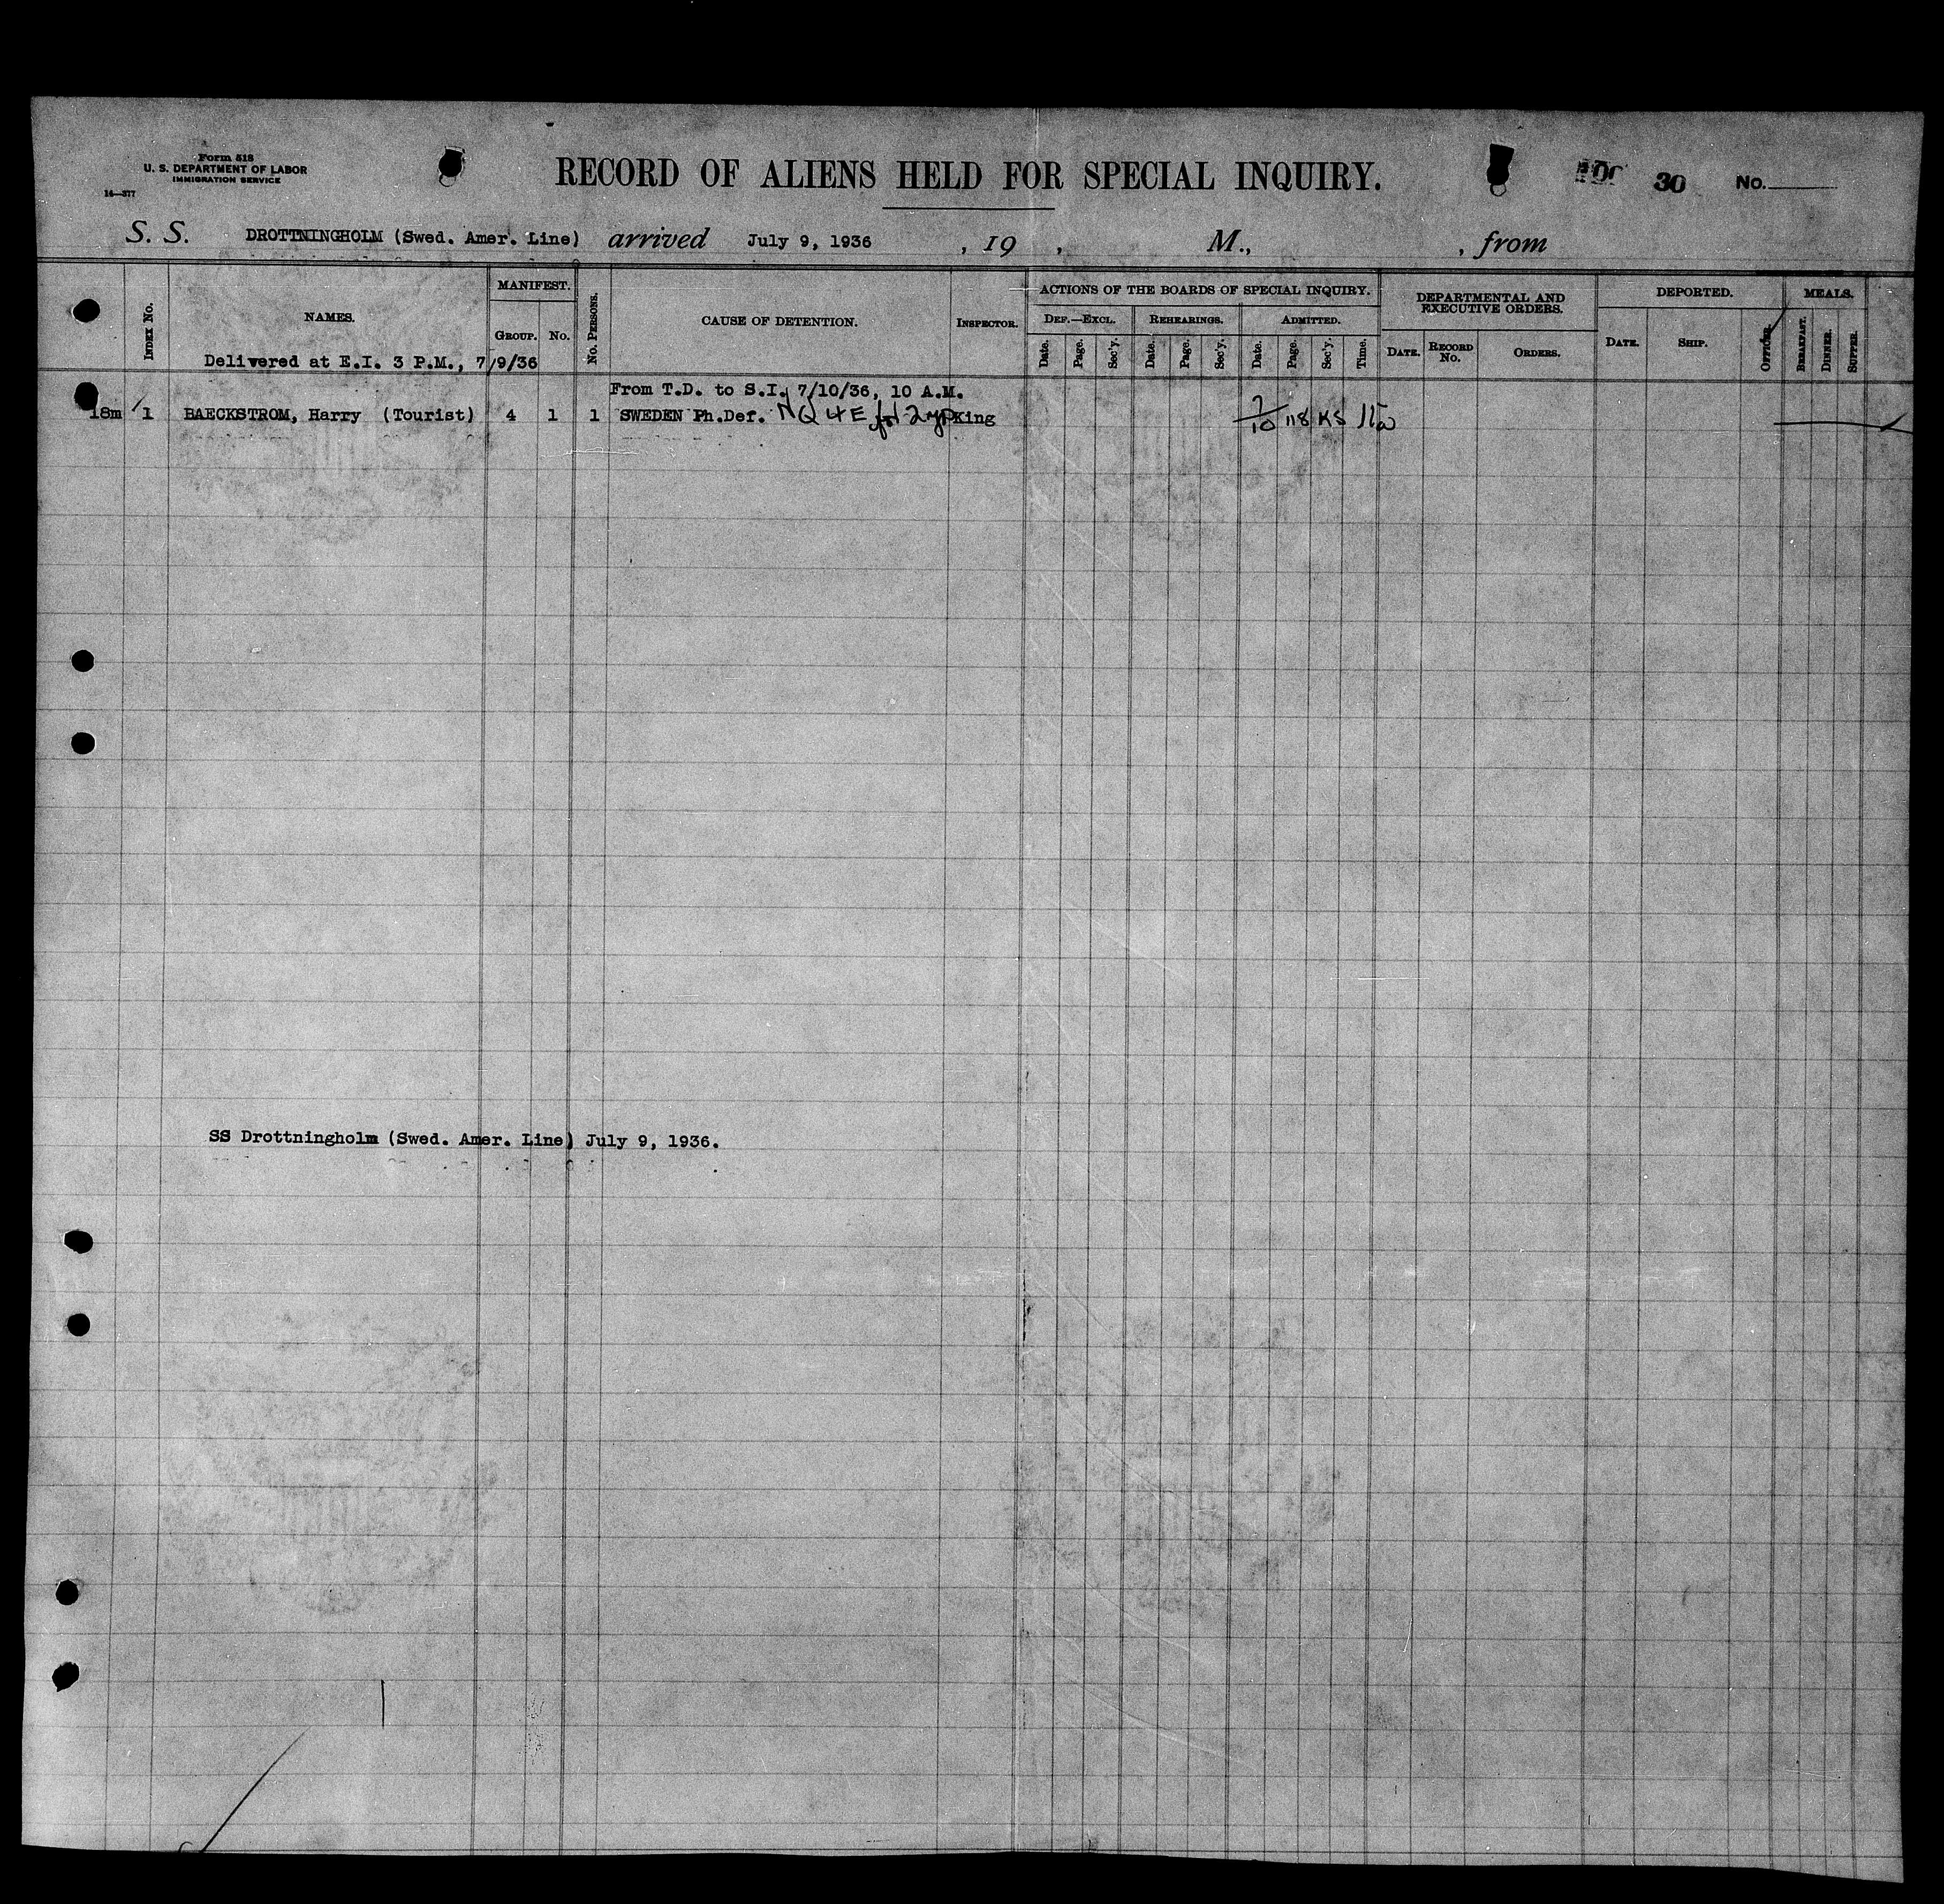 Form 518
U. S. DEPARTMENT OF LABOR
IMMIGRATION SERVICE
14—377
RECORD OF ALIENS HELD FOR SPECIAL INQUIRY.
30 No.
S. S. DROTTNINGHOLM (Swed. Amer. Line) arrived July 9, 1936 , 19 , M., , from
INDEX NO.
NAMES.
MANIFEST.
GROUP. NO.
NO. PERSONS.
CAUSE OF DETENTION.
INSPECTOR.
ACTIONS OF THE BOARDS OF SPECIAL INQUIRY.
DEF.—EXCL. REHEARINGS. ADMITTED.
Date. Page. Sec'y. Date. Page. Sec'y. Date. Page. Sec'y. Time.
DEPARTMENTAL AND
EXECUTIVE ORDERS.
DATE. RECORD NO. ORDERS.
DEPORTED.
DATE. SHIP. OFFICER.
MEALS.
BREAKFAST. DINNER. SUPPER.
Delivered at E.I. 3 P.M., 7/9/36
From T.D. to S.I. 7/10/36, 10 A.M.
18m 1 BAECKSTROM, Harry (Tourist) 4 1 1 SWEDEN Ph.Def. King 7/10 118 KS
SS Drottningholm (Swed. Amer. Line) July 9, 1936.